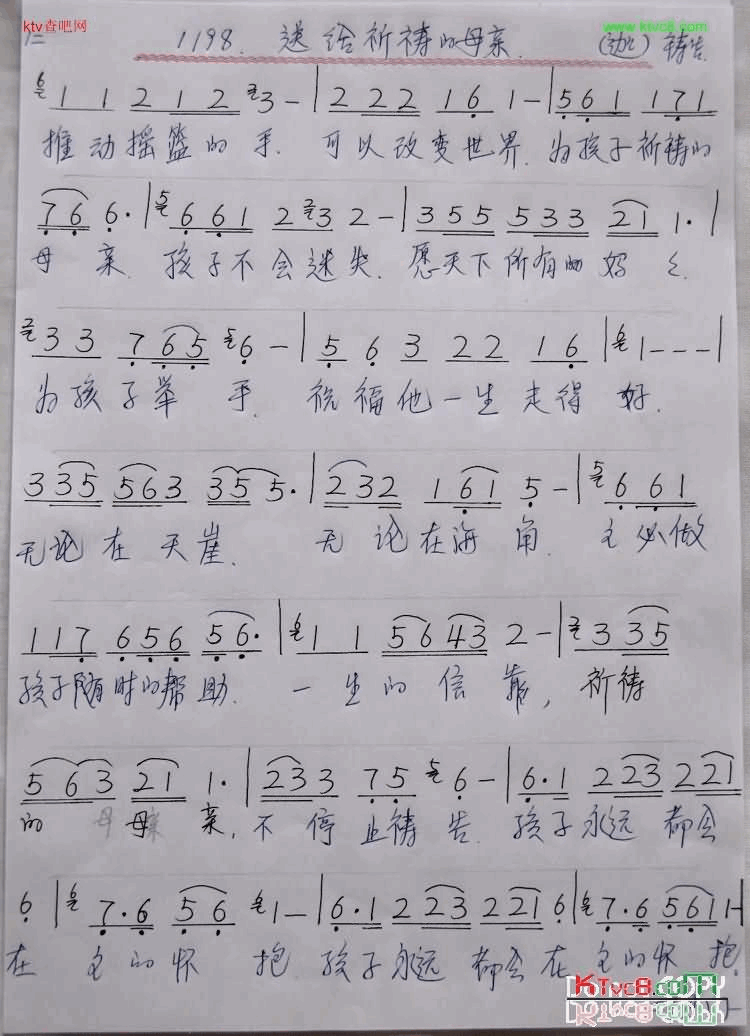 ktv查吧网
www.ktvc8.com
1198. 送给祈祷的母亲. (迦) 祷告
6 1 1 2 1 2 2 3 - | 2 2 2 1 6 1 - | 5 6 1 1 7 1
推动摇篮的手. 可以改变世界. 为孩子祈祷的
7 6 6 · | 5 6 6 1 2 2 3 2 - | 3 5 5 5 3 3 2 1 1 · |
母亲. 孩子不会迷失. 愿天下所有的妈
2 3 3 7 6 5 5 6 - | 5 6 3 2 2 1 6 | 6 1 - - - |
为孩子举手. 祝福他一生走得好.
3 3 5 5 6 3 3 5 5 · | 2 3 2 1 6 1 5 - | 5 6 6 1
无论在天崖. 无论在海角. 主必做
1 1 7 6 5 6 5 6 · | 6 1 1 5 6 4 3 2 - | 2 3 3 5
孩子随时的帮助. 一生的信靠, 祈祷
5 6 3 2 1 1 · | 2 3 3 7 5 5 6 - | 6 · 1 2 2 3 2 2 1
的 母 母亲, 不停止祷告. 孩子永远都会
6 | 6 7 · 6 5 6 6 1 - | 6 · 1 2 2 3 2 2 1 6 | 6 7 · 6 5 6 1 1 -
在主的怀抱. 孩子永远都会在主的怀抱.
KTvc8.com
DO NOT COPY